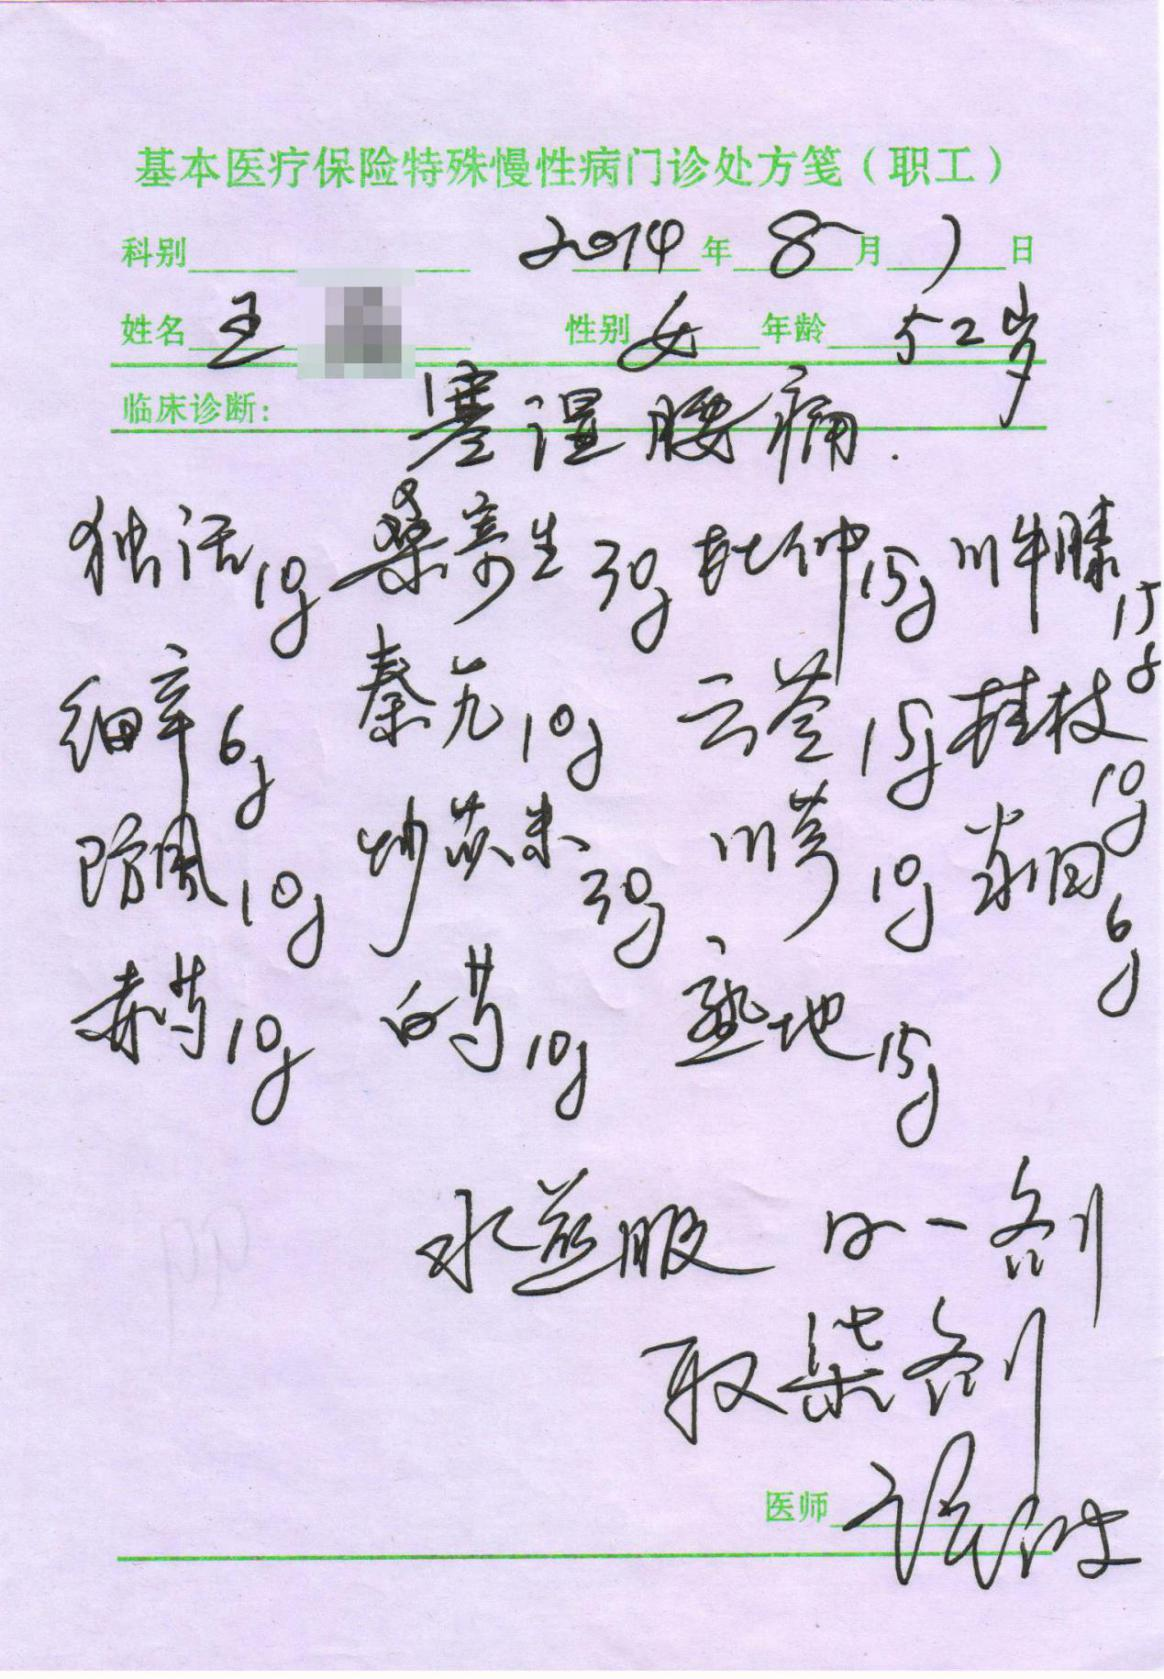 基本医疗保险特殊慢性病门诊处方笺（职工）
科别 2014年 8月 1日
姓名 王 性别 女 年龄 52岁
临床诊断： 寒湿腰痛.
独活10g 桑寄生30g 杜仲15g 川牛膝15g
细辛6g 秦艽10g 云苓15g 桂枝10g
防风10g 炒苡米30g 川芎10g 6g
赤芍10g 白芍10g 熟地15g
水煎服 日一剂
取柒剂
医师